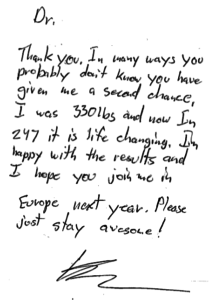 Dr.
Thank you. In many ways you
probably don't know you have
given me a second chance,
I was 330lbs and now In
247 it is life changing. I'm
happy with the results and
I hope you join me in
Europe next year. Please
just stay awesome!